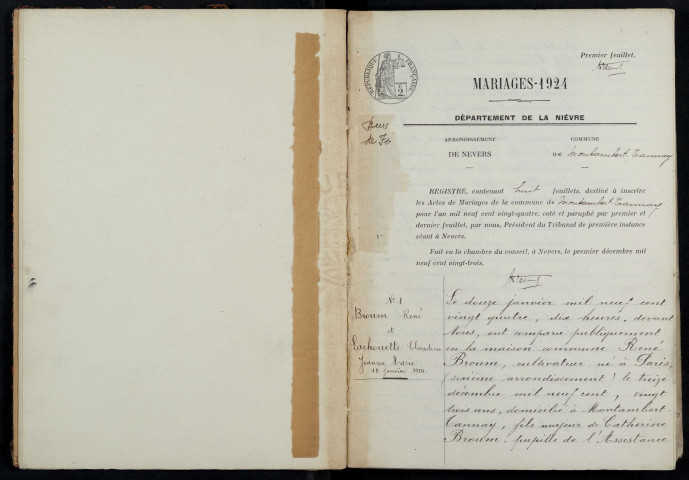 Premier feuillet.
RÉPUBLIQUE FRANÇAISE
2
MARIAGES-1924
DÉPARTEMENT DE LA NIÈVRE
ARRONDISSEMENT
DE NEVERS
COMMUNE
DE Montambert-Tannay
REGISTRE, contenant huit feuillets, destiné à inscrire
les Actes de Mariages de la commune de Montambert-Tannay
pour l'an mil neuf cent vingt-quatre, coté et paraphé par premier et
dernier feuillet, par nous, Président du Tribunal de première instance
séant à Nevers.
Fait en la chambre du conseil, à Nevers, le premier décembre mil
neuf cent vingt-trois.
N° 1
Broum René
et
Lachouette Claudine
Jeanne Marie
12 janvier 1924
Le douze janvier mil neuf cent
vingt quatre, dix heures, devant
Nous, ont comparu publiquement
en la maison commune René
Broum, cultivateur né à Paris,
(sixième arrondissement) le treize
décembre mil neuf cent, vingt
trois ans, domicilié à Montambert-
Tannay, fils majeur de Catherine
Broum, pupille de l'Assistance